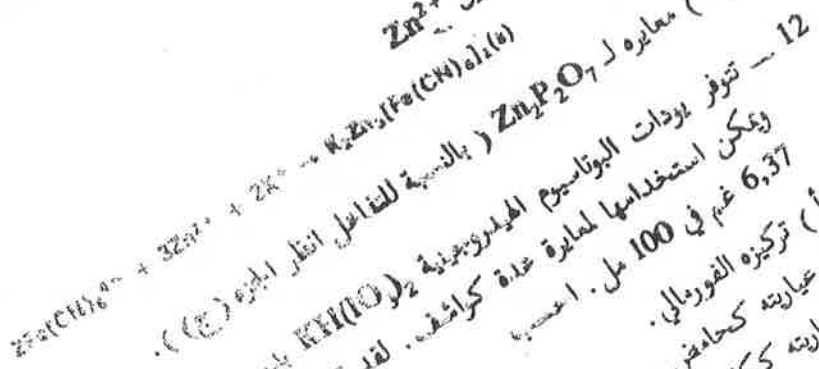 Zn²⁺
2Fe(CN)₆⁴⁻ + 3Zn²⁺ + 2K⁺ → K₂Zn₃[Fe(CN)₆]₂(s)
) معايره لـ Zn₂P₂O₇ ( بالنسبة للتفاعل انظر الجزء (ج) ).
12 – تتوفر يودات البوتاسيوم الهيدروجينية KH(IO₃)₂
ويمكن استخدامها لمعايرة عدة كواشف. لقد
6,37 غم في 100 مل. احسب
أ ) تركيزه الفورمالي.
عياريته كحامض